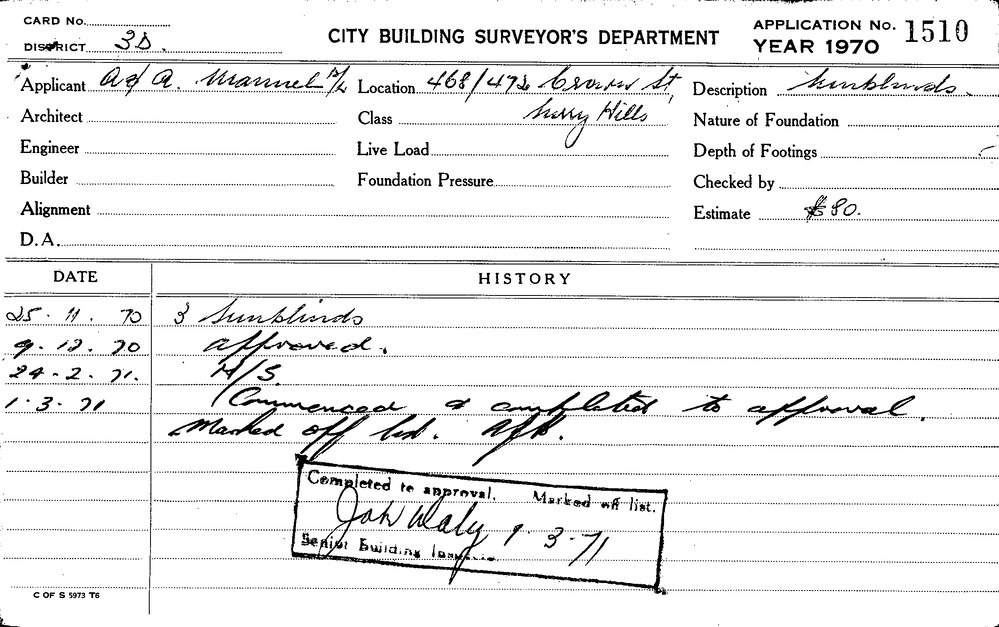 CARD No.
DISTRICT 3D.
CITY BUILDING SURVEYOR'S DEPARTMENT
APPLICATION No. 1510
YEAR 1970
Applicant A & A. Mannuel P/L Location 468/472 Crown St, Description Sunblinds.
Architect Class Surry Hills Nature of Foundation
Engineer Live Load Depth of Footings
Builder Foundation Pressure Checked by
Alignment Estimate $80.
D.A.
DATE HISTORY
25.11.70 3 Sunblinds
9.12.70 approved.
24-2.71. N/S.
1.3.71 Commenced & completed to approval.
Marked off list.
Completed to approval. Marked off list.
John Daly 9.3.71
Senior Building
C OF S 5973 T6